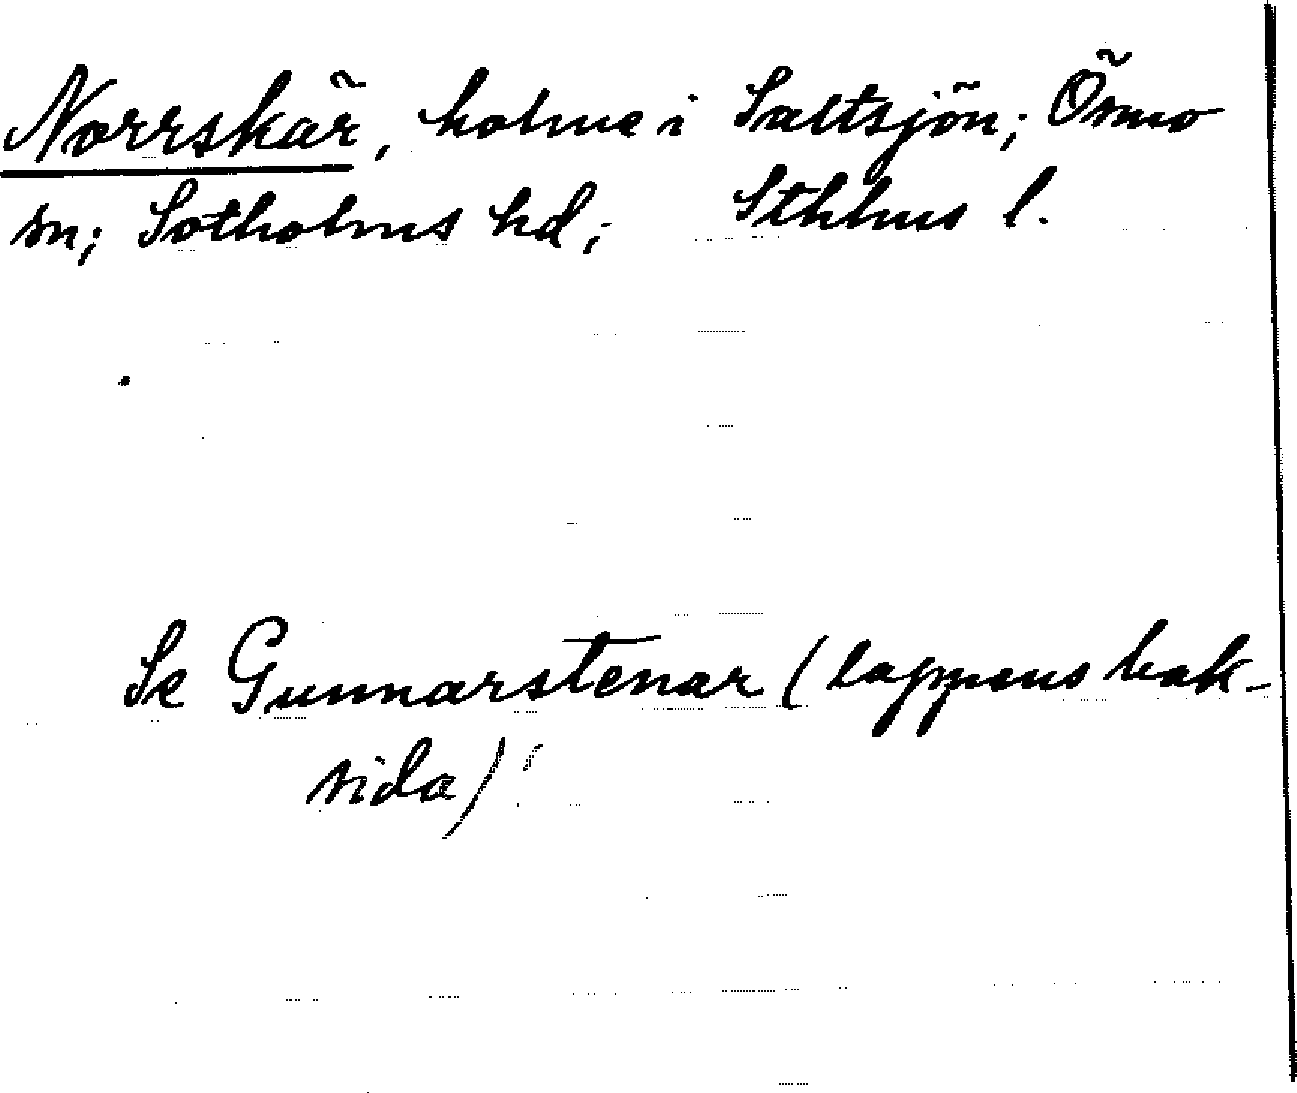 Norrskär, holme i Saltsjön; Ösmo
sn; Sotholms hd; Sthlms l.
Se Gunnarstenar (lappens bak-
sida)